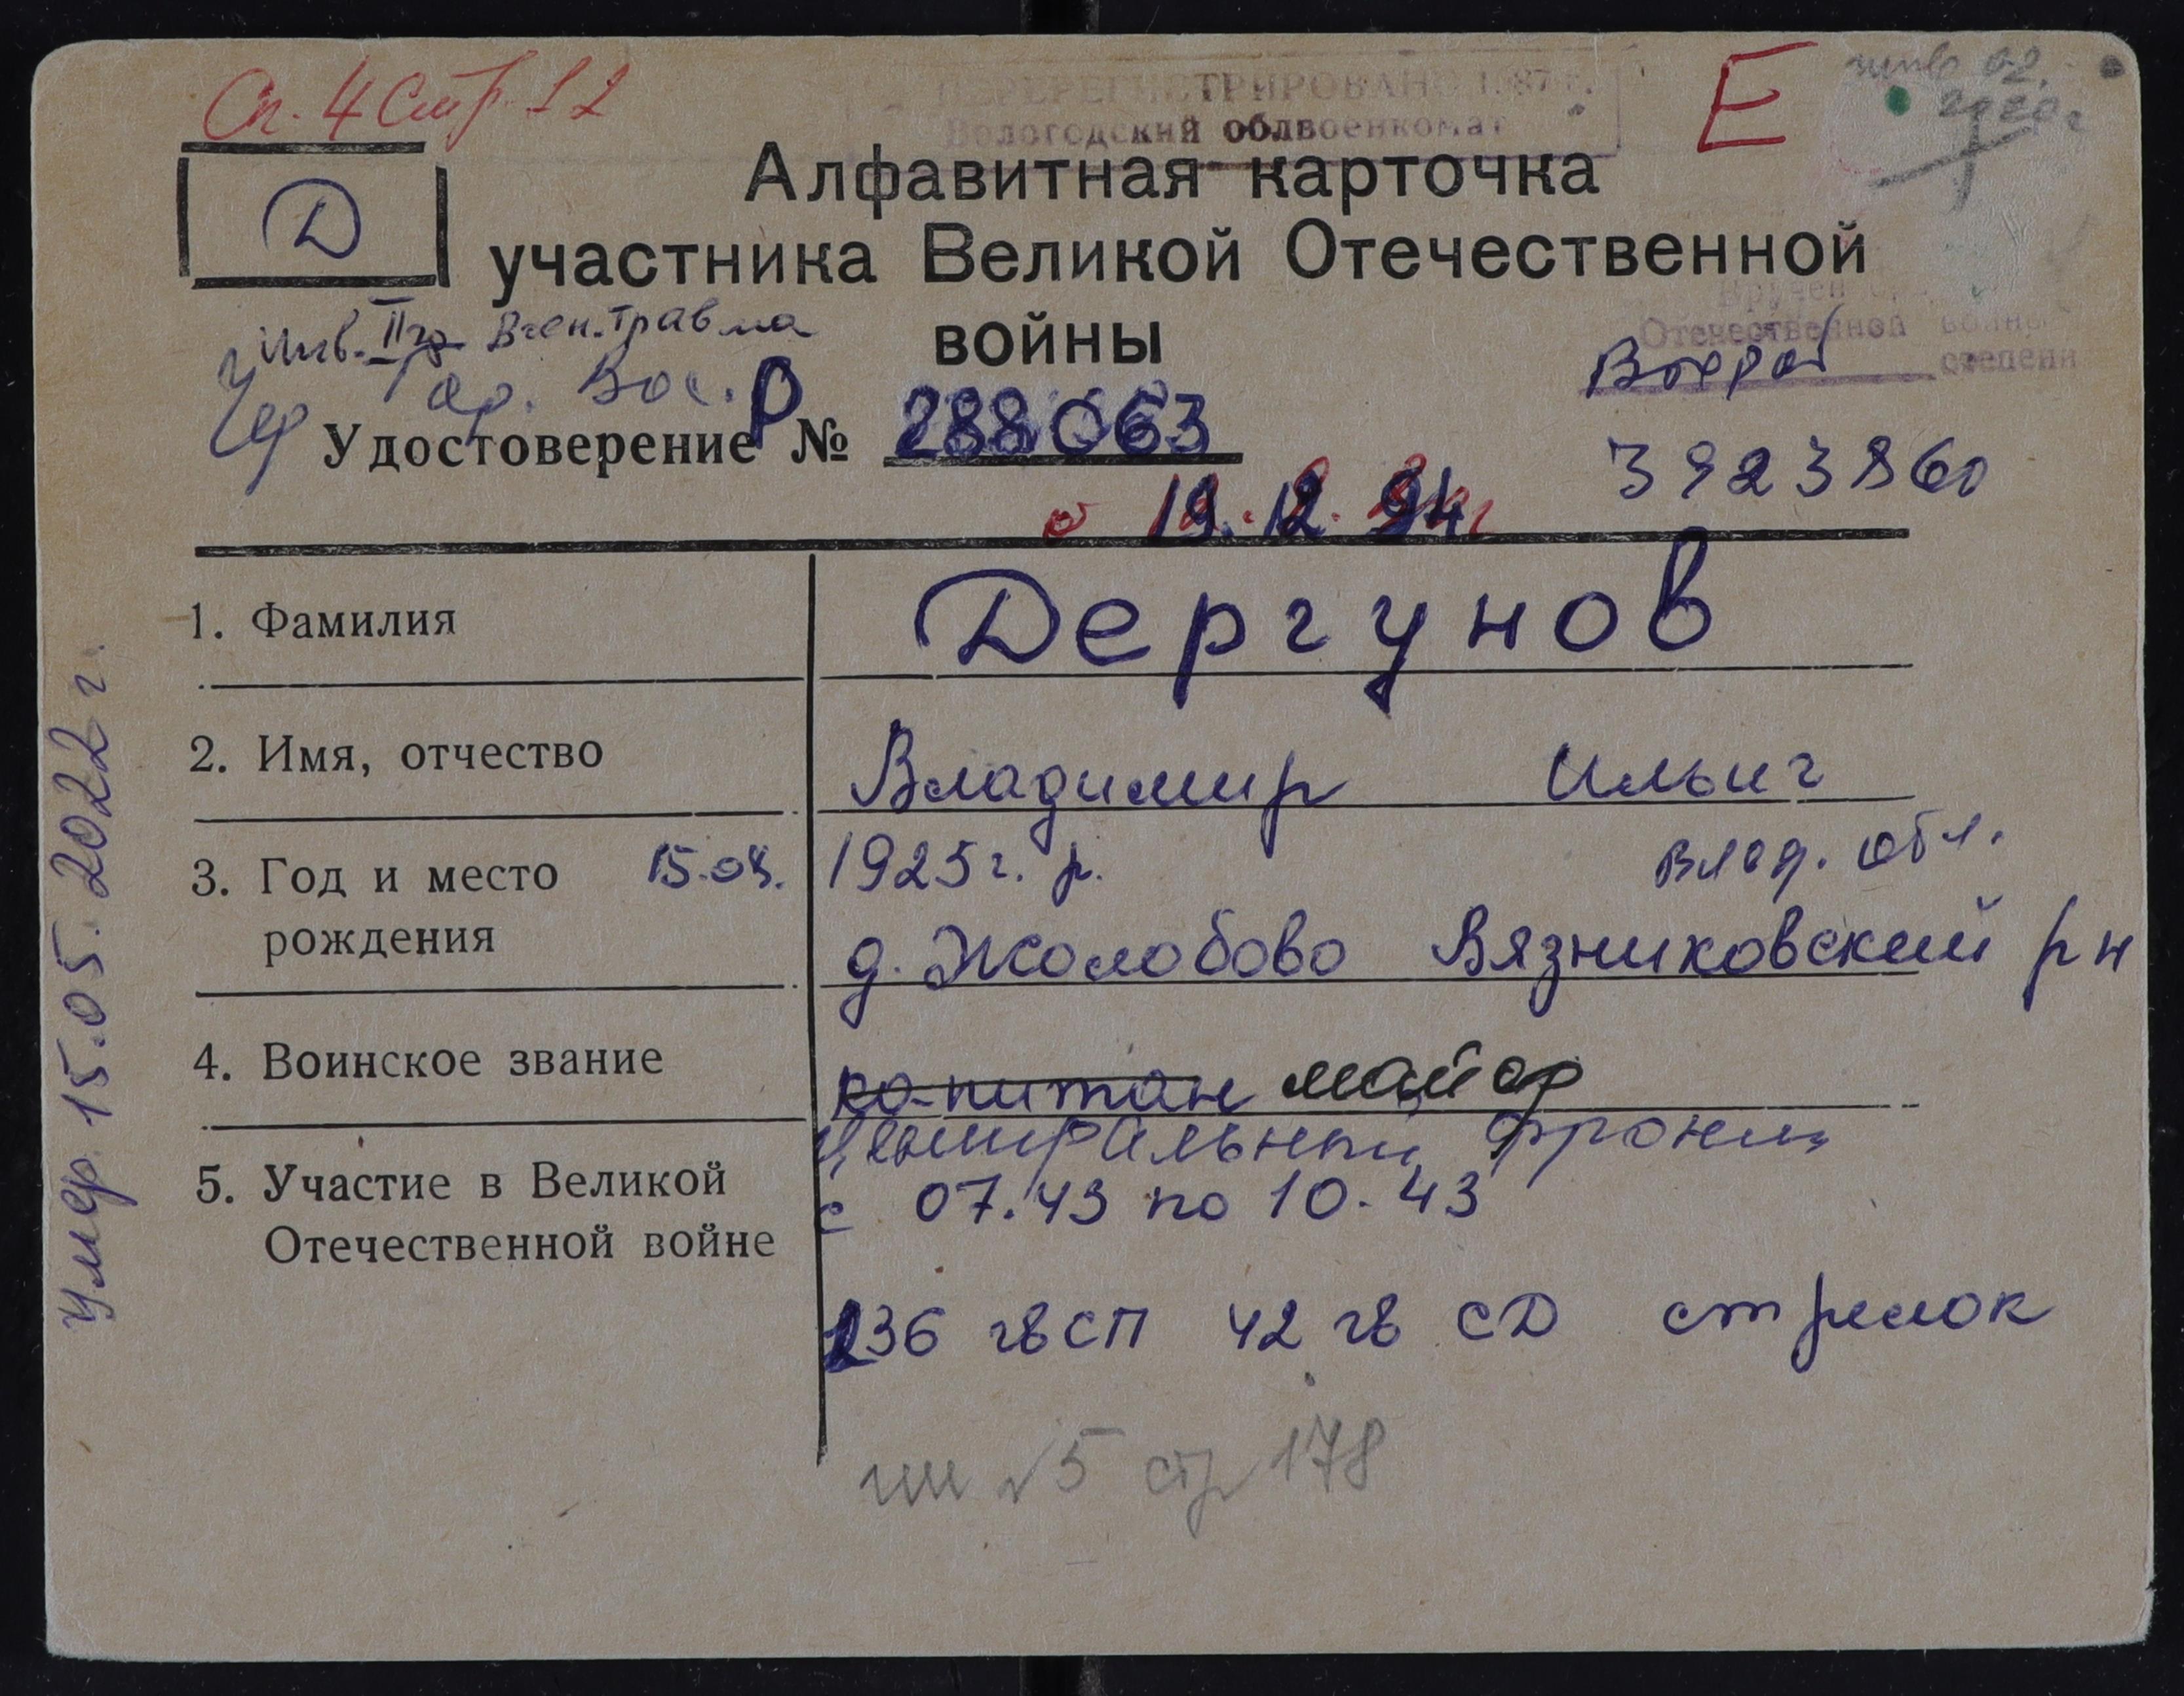 Сп. 4 Стр. 12
ПЕРЕРЕГИСТРИРОВАНО 1987 г.
Вологодский облвоенкомат
Е
2020 г
Д
Алфавитная карточка
участника Великой Отечественной
войны
Инв. II гр Воен. травма
Отечественной войны
Второй степени
Удостоверение Р № 288063
3923860
о 19.12.94
1. Фамилия Дергунов
2. Имя, отчество Владимир Ильич
3. Год и место рождения 1925 г. р. Влад. обл.
д. Жолобово Вязниковский р н
4. Воинское звание капитан майор
5. Участие в Великой Отечественной войне
Центральный фронт
с 07.43 по 10.43
136 гв СП 42 гв СД стрелок
5 стр 178
Умер 15.05.2022 г.